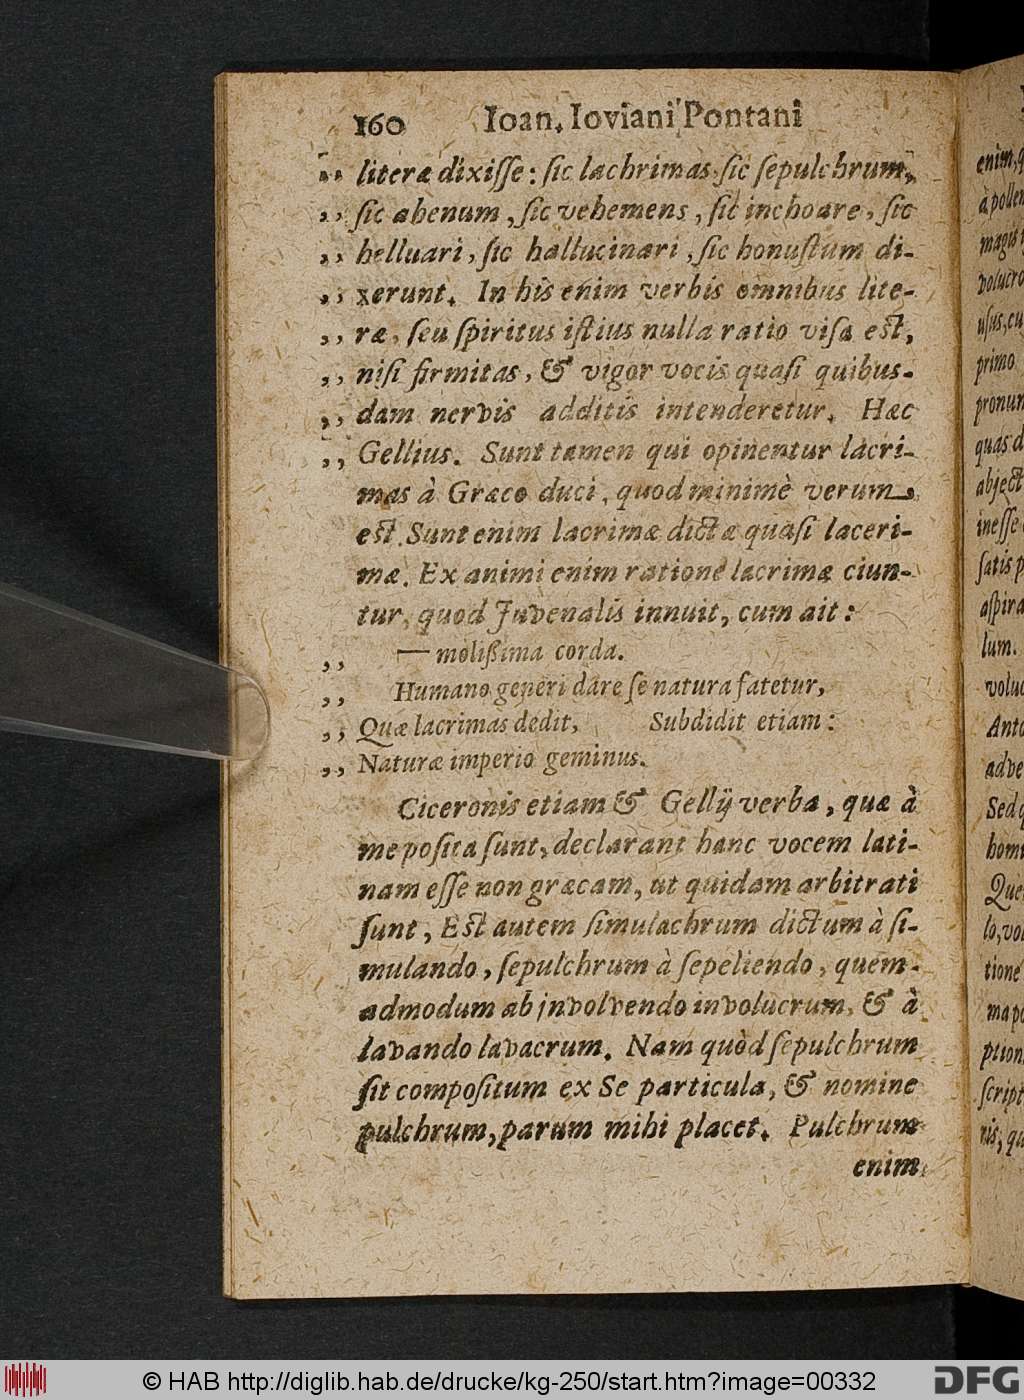 160 Ioan. Ioviani Pontani
,, literæ dixiſſe: ſic lachrimas, ſic ſepulchrum,
,, ſic ahenum, ſic vehemens, ſic inchoare, ſic
,, helluari, ſic hallucinari, ſic honuſtum di-
,, xerunt. In his enim verbis omnibus lite-
,, ræ, ſeu ſpiritus iſtius nulla ratio viſa eſt,
,, niſi firmitas, & vigor vocis quaſi quibus-
,, dam nervis additis intenderetur. Hæc
,, Gellius. Sunt tamen qui opinentur lacri-
mas à Græco duci, quod minimè verum
eſt. Sunt enim lacrimæ dictæ quaſi laceri-
mæ. Ex animi enim ratione lacrimæ ciun-
tur, quod Juvenalis innuit, cum ait:
,, — molißima corda.
,, Humano generi dare ſe natura fatetur,
,, Quæ lacrimas dedit, Subdidit etiam:
,, Naturæ imperio geminus.
Ciceronis etiam & Gellij verba, quæ à
me poſita ſunt, declarant hanc vocem lati-
nam eſſe non græcam, ut quidam arbitrati
ſunt, Eſt autem ſimulachrum dictum à ſi-
mulando, ſepulchrum à ſepeliendo, quem-
admodum ab involvendo involucrum, & à
lavando lavacrum. Nam quòd ſepulchrum
ſit compoſitum ex Se particula, & nomine
pulchrum, parum mihi placet. Pulchrum
enim
enim, q
à pollen
magis
volucro
uſus, cu
primo
pronun
quas d
abject
ineſſe
ſatis p
aſpira
lum.
voluc
Anto
adve
Sed q
homi
Que
lo, vol
tione
ma po
ption
ſcript
nis, qu
© HAB http://diglib.hab.de/drucke/kg-250/start.htm?image=00332
DFG